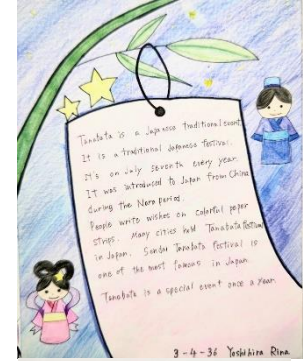 Tanabata is a Japanese traditional event.
It is a traditional Japanese festival.
It's on July seventh every year.
It was introduced to Japan from China
during the Nara period.
People write wishes on colorful paper
strips. Many cities hold Tanabata festival
in Japan. Sendai Tanabata Festival is
one of the most famous in Japan.
Tanabata is a special event once a year.
3-4-36 Yoshihira Rina